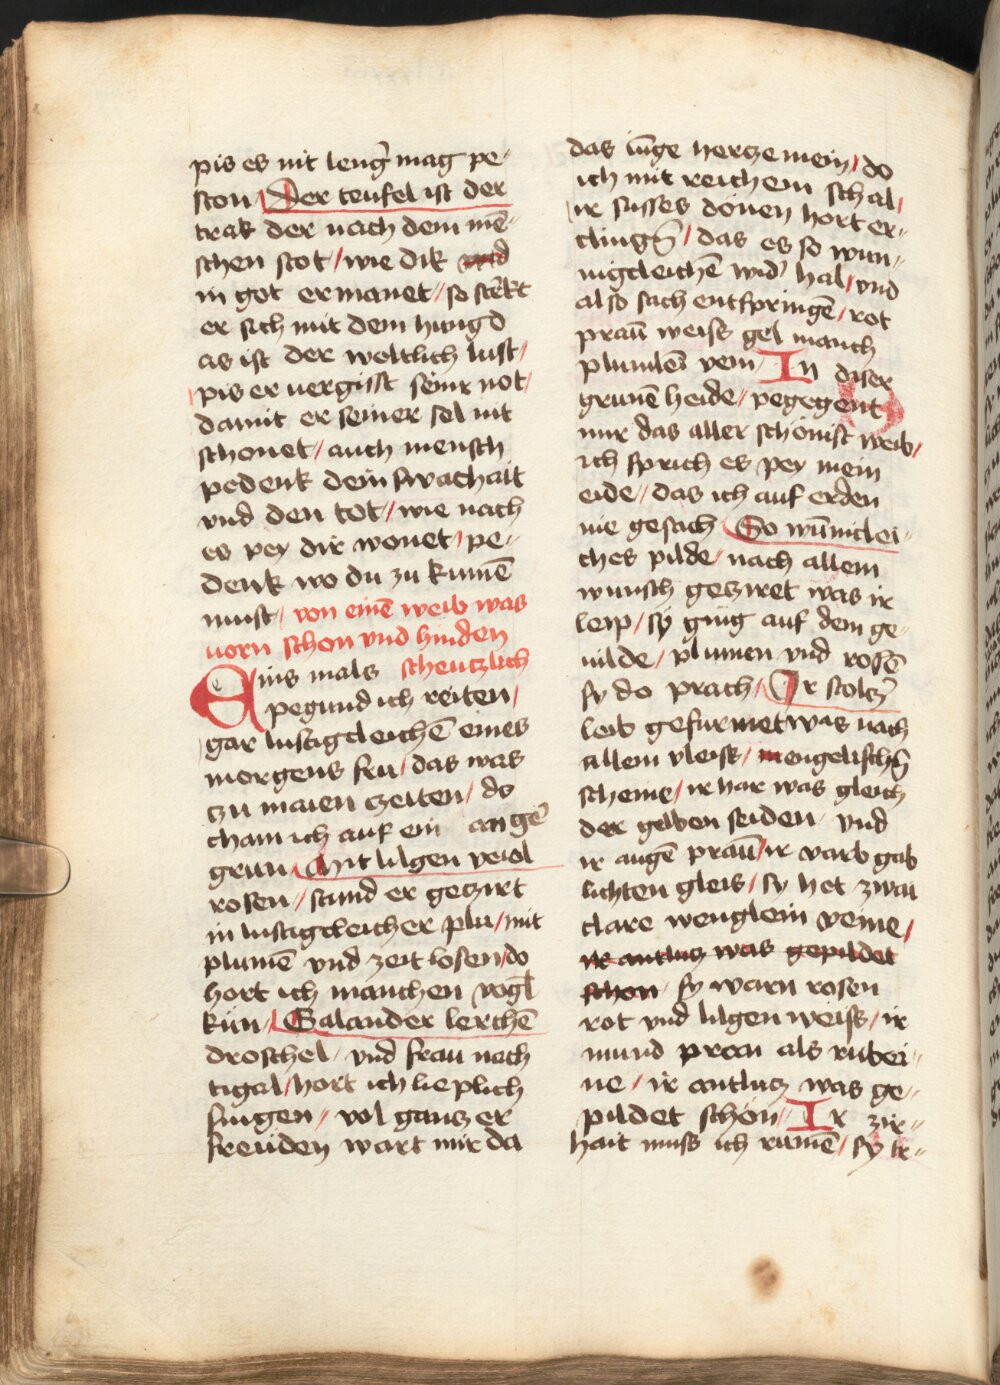 pis es nit leng᷑ mag pe-
ston / Der teufel ist der
trak der nach dem mē-
schen stot / wie dik vnd
in got ermanet / so sterkt
er sich mit dem hungd
as ist der weltlich lust /
pis er vergisst seinr not /
damit er seiner sel nit
schonet / auch mensch
pedenk dein swachait
vnd den tot / wie nach
es pey dir wonet / pe-
denk wo du zu kumē
must / von einē weib was
vorn schon vnd hinden
Ains mals scheutzlich
pegund ich reiten /
gar lustigcleichē eines
morgens fru / das was
zu maien czeiten / do
cham ich auf ein ang᷑
grun / Mit lilgen veiol
rosen / stund er geczirt
in lustigcleicher plu / mit
plumē vnd zeitlosen / do
hort ich manchen vogl
kün / Galander lerchē
droschel / vnd frau nach
tigal / hort ich lieplich
singen / vol gancz er
freuden wart mir da
das iūge hercze mein / do
ich mit reichem schal /
ir susses donen hort er-
clingē / das es so wun-
nigcleichē wid᷑ hal / vnd
also sach entspringē / rot
praū weiss gel manch
plumleī vein / In diser
grunē heide / pegegent
mir das aller schonist weib /
ich sprich es pey mein
eide / das ich auf erden
nie gesach So wūniclei-
ches pilde / nach allem
wunsch geziret was ir
leip / sy ging auf dem ge-
uilde / plumen vnd rosē
sy do prach / Ir stolcz᷑
leib gefurmet was nach
allem vleisk / in engelischē
scheine / ir har was gleich
der gelben seiden / vnd
ir augē praū / ir varb gab
lichten gleis / sy het zwai
clare wenglein veine /
ir antlucz was gepildet
schon / sy warn rosen
rot vnd lilgen weiss / ir
mund pran als rubei-
ne / ir antlucz was ge-
pildet schon / Ir zir-
hait muss ich rumē / sy tr-